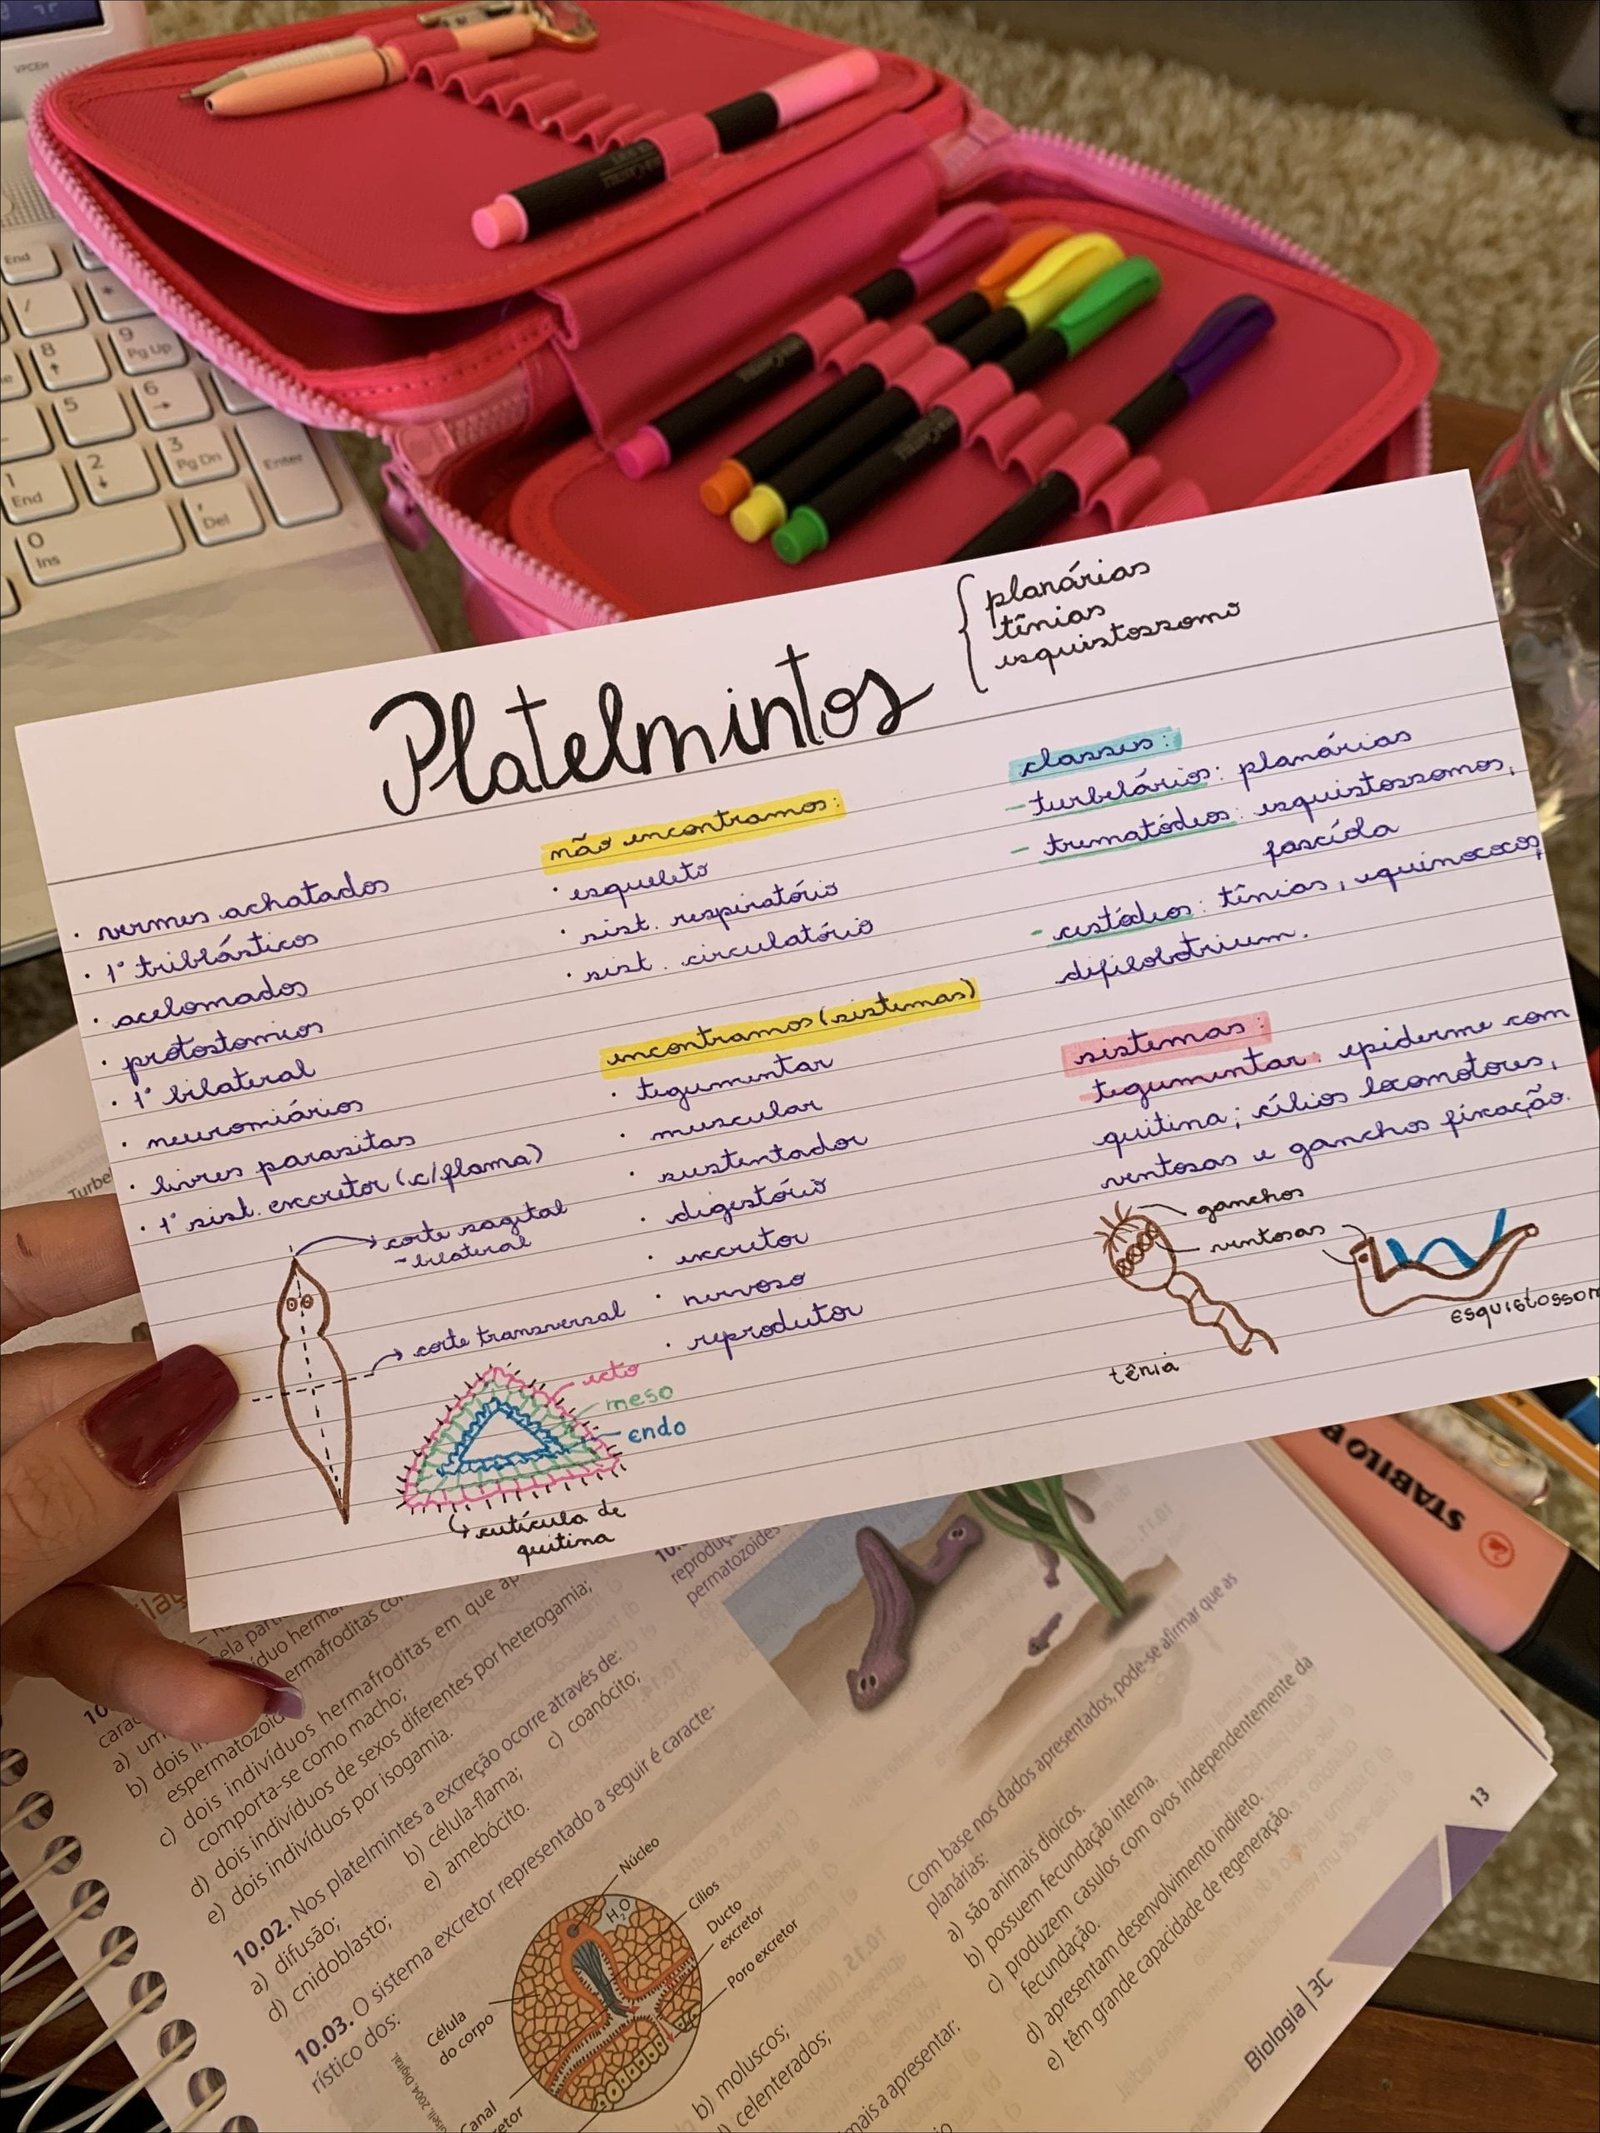 VPCEH
End
/
*
8
9
Pg Up
5
6
1
End
2
3
Pg Dn
Enter
0
Ins
,
Del
Platelmintos
planárias
tênias
esquistossomo
• vermes achatados
• 1° triblásticos
• acelomados
• protostomios
• 1° bilateral
• neuromiários
• livres parasitas
• 1° sist. excretor (c/flama)
corte sagital
- bilateral
corte transversal
ecto
meso
endo
cutícula de
quitina
não encontramos:
• esqueleto
• sist. respiratório
• sist. circulatório
encontramos (sistemas)
• tegumentar
• muscular
• sustentador
• digestório
• excretor
• nervoso
• reprodutor
classes:
- turbelários: planárias
- trematódeos: esquistossomos,
fascíola
- cestódeos: tênias, equinococos,
difilobotrium.
sistemas:
- tegumentar: epiderme com
quitina; cílios locomotores,
ventosas e ganchos fixação.
ganchos
ventosas
tênia
esquistossom
STABILO B
Turbe
a) um
b) dois in
espermatozoi
c) dois indivíduos hermafroditas em que ap
comporta-se como macho;
d) dois indivíduos de sexos diferentes por heterogamia;
e) dois indivíduos por isogamia.
10.02. Nos platelmintes a excreção ocorre através de:
a) difusão;
b) célula-flama;
c) coanócito;
d) cnidoblasto;
e) amebócito.
10.03. O sistema excretor representado a seguir é caracte-
rístico dos:
Núcleo
H₂O
Cílios
Ducto
excretor
Poro excretor
Célula
do corpo
Canal
retor
b) moluscos;
celenterados;
mais a apresentar:
reproduç
permatozoides
Com base nos dados apresentados, pode-se afirmar que as
planárias:
a) são animais dioicos.
b) possuem fecundação interna.
c) produzem casulos com ovos independentemente da
fecundação.
d) apresentam desenvolvimento indireto.
e) têm grande capacidade de regeneração.
13
Biologia | 3C